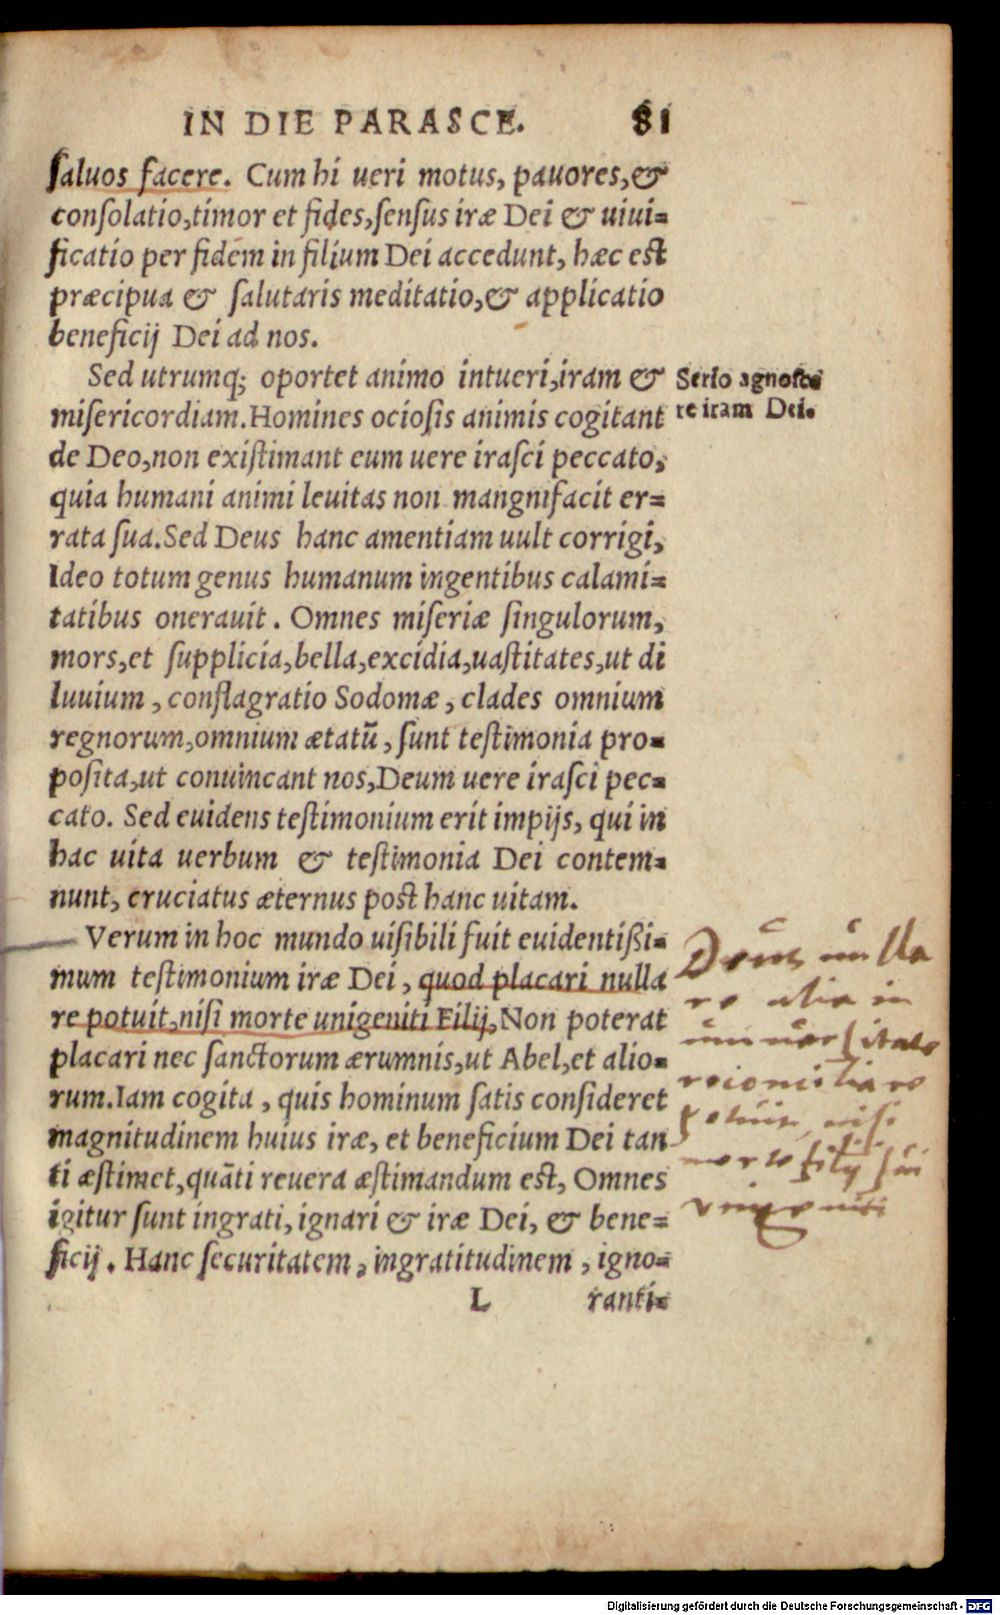 IN DIE PARASCE. 81
ſaluos facere. Cum hi ueri motus, pauores, &
conſolatio, timor et fides, ſenſus iræ Dei & uiui=
ficatio per fidem in filium Dei accedunt, hæc est
præcipua & ſalutaris meditatio, & applicatio
beneficij Dei ad nos.
Sed utrumq; oportet animo intueri, iram &
Serio agnoſce
miſericordiam. Homines ocioſis animis cogitant
re iram Dei.
de Deo, non exiſtimant eum uere iraſci peccato,
quia humani animi leuitas non mangnifacit er=
rata ſua. Sed Deus hanc amentiam uult corrigi,
Ideo totum genus humanum ingentibus calami=
tatibus onerauit. Omnes miſeriæ ſingulorum,
mors, et ſupplicia, bella, excidia, uaſtitates, ut di
luuium, conflagratio Sodomæ, clades omnium
regnorum, omnium ætatū, ſunt teſtimonia pro=
poſita, ut conuincant nos, Deum uere iraſci pec=
cato. Sed euidens teſtimonium erit impijs, qui in
hac uita uerbum & teſtimonia Dei contem=
nunt, cruciatus æternus poſt hanc uitam.
Verum in hoc mundo uiſibili fuit euidentißi=
mum teſtimonium iræ Dei, quod placari nulla
re potuit, niſi morte unigeniti Filij, Non poterat
placari nec ſanctorum ærumnis, ut Abel, et alio=
rum. Iam cogita, quis hominum ſatis conſideret
magnitudinem huius iræ, et beneficium Dei tan
ti æſtimet, quāti reuera æſtimandum eſt, Omnes
igitur ſunt ingrati, ignari & iræ Dei, & bene=
ficij. Hanc ſecuritatem, ingratitudinem, igno=
L ranti=
Deus nulla
re alia in
uniuerſitate
reconciliare
potuit niſi
morte filij ſui
vnigeniti
Digitalisierung gefördert durch die Deutsche Forschungsgemeinschaft - DFG